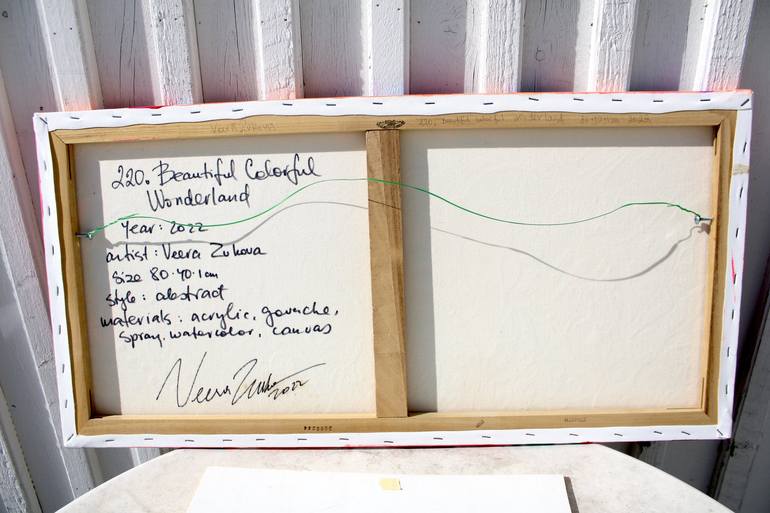 220. Beautiful Colorful Wonderland
220. Beautiful Colorful
Wonderland
year: 2022
artist: Veera Zukova
size 80.40.1cm
style: abstract
materials: acrylic, gouache,
spray, watercolor, canvas
Veera 2022